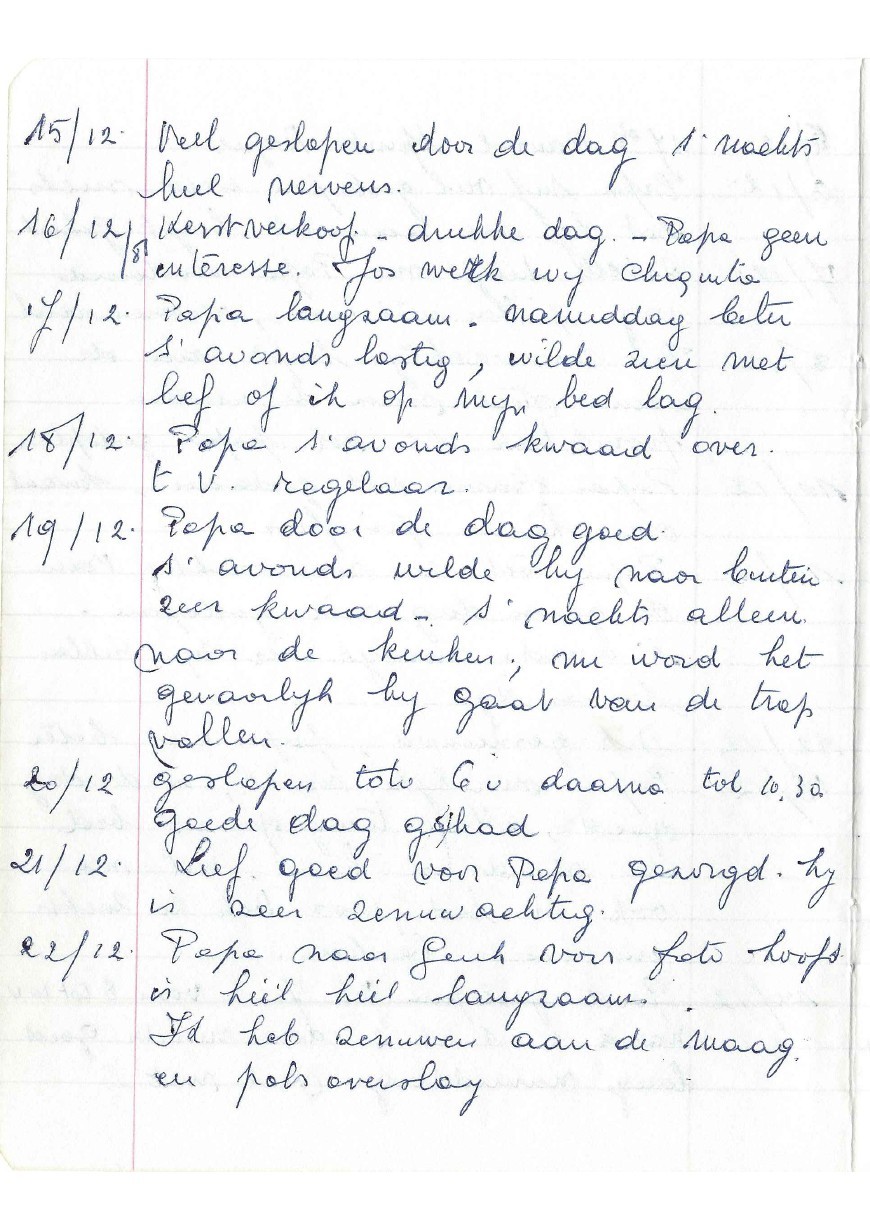 15/12. Veel geslapen door de dag s' nachts
heel nerveus.
16/12/8 Kerstverkoop - drukke dag. - Papa geen
interesse. Jos werk wy Chiquita
17/12. Papa langzaam. namiddag beter
s' avonds lastig, wilde zien met
lief of ik op myn bed lag.
18/12. Papa s' avonds kwaad over
t V. regelaar.
19/12. Papa door de dag goed.
s' avonds wilde hy naar buiten.
zeer kwaad - s' nachts alleen
naar de keuken, nu word het
gevaarlyk hy gaat van de trap
vallen.
20/12 geslapen tot 6 u daarna tot 10,30
goede dag gehad
21/12. Lief goed voor Papa gezorgd. hy
is zeer zenuwachtig.
22/12. Papa naar Genk voor foto hooft
is héél héél langzaam.
Ik heb zenuwen aan de maag.
en pols overslag